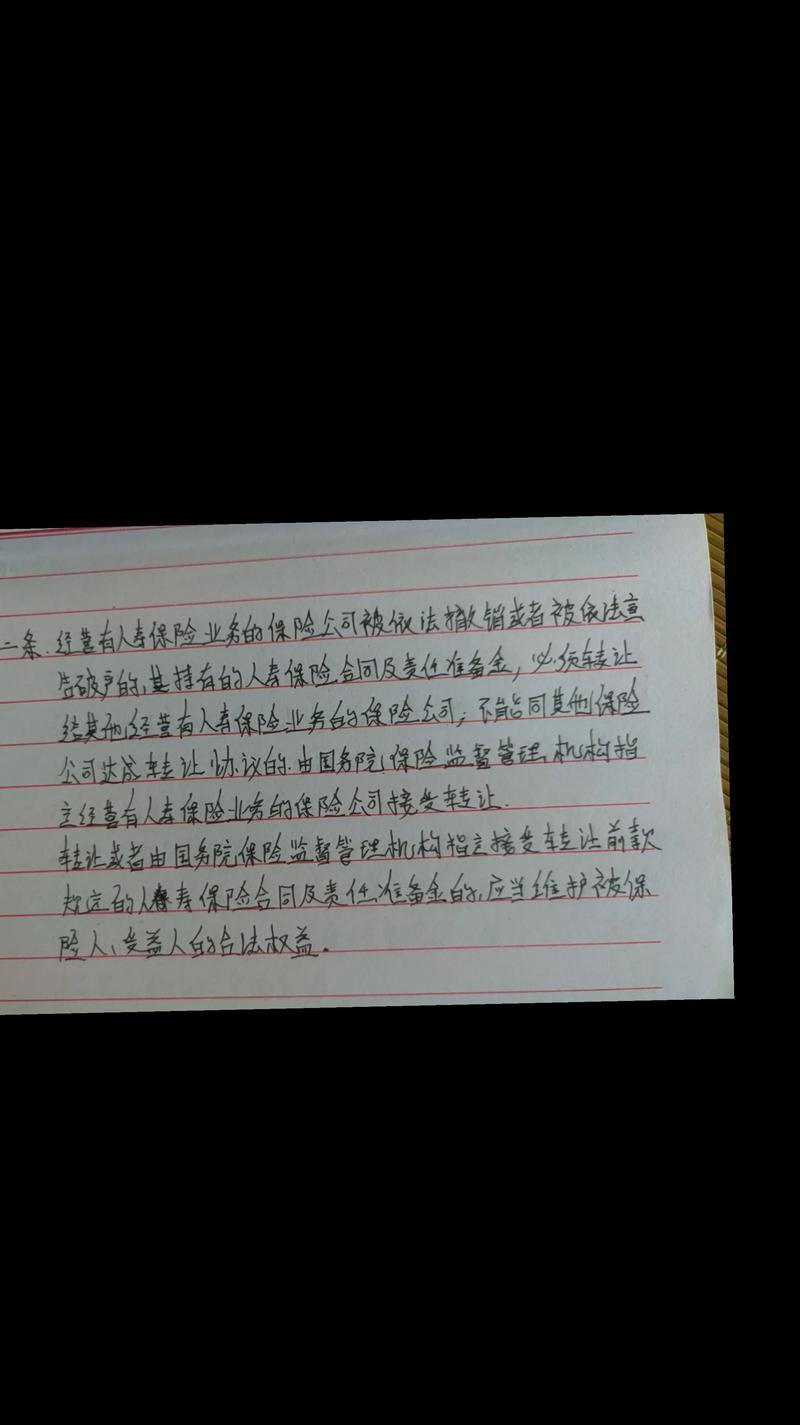 二条.经营有人寿保险业务的保险公司被依法撤销或者被依法宣
告破产的,其持有的人寿保险合同及责任准备金,必须转让
给其他经营有人寿保险业务的保险公司;不能同其他保险
公司达成转让协议的.由国务院保险监督管理机构指
定经营有人寿保险业务的保险公司接受转让.
转让或者由国务院保险监督管理机构指定接受转让前款
规定的人寿保险合同及责任准备金的,应当维护被保
险人、受益人的合法权益。